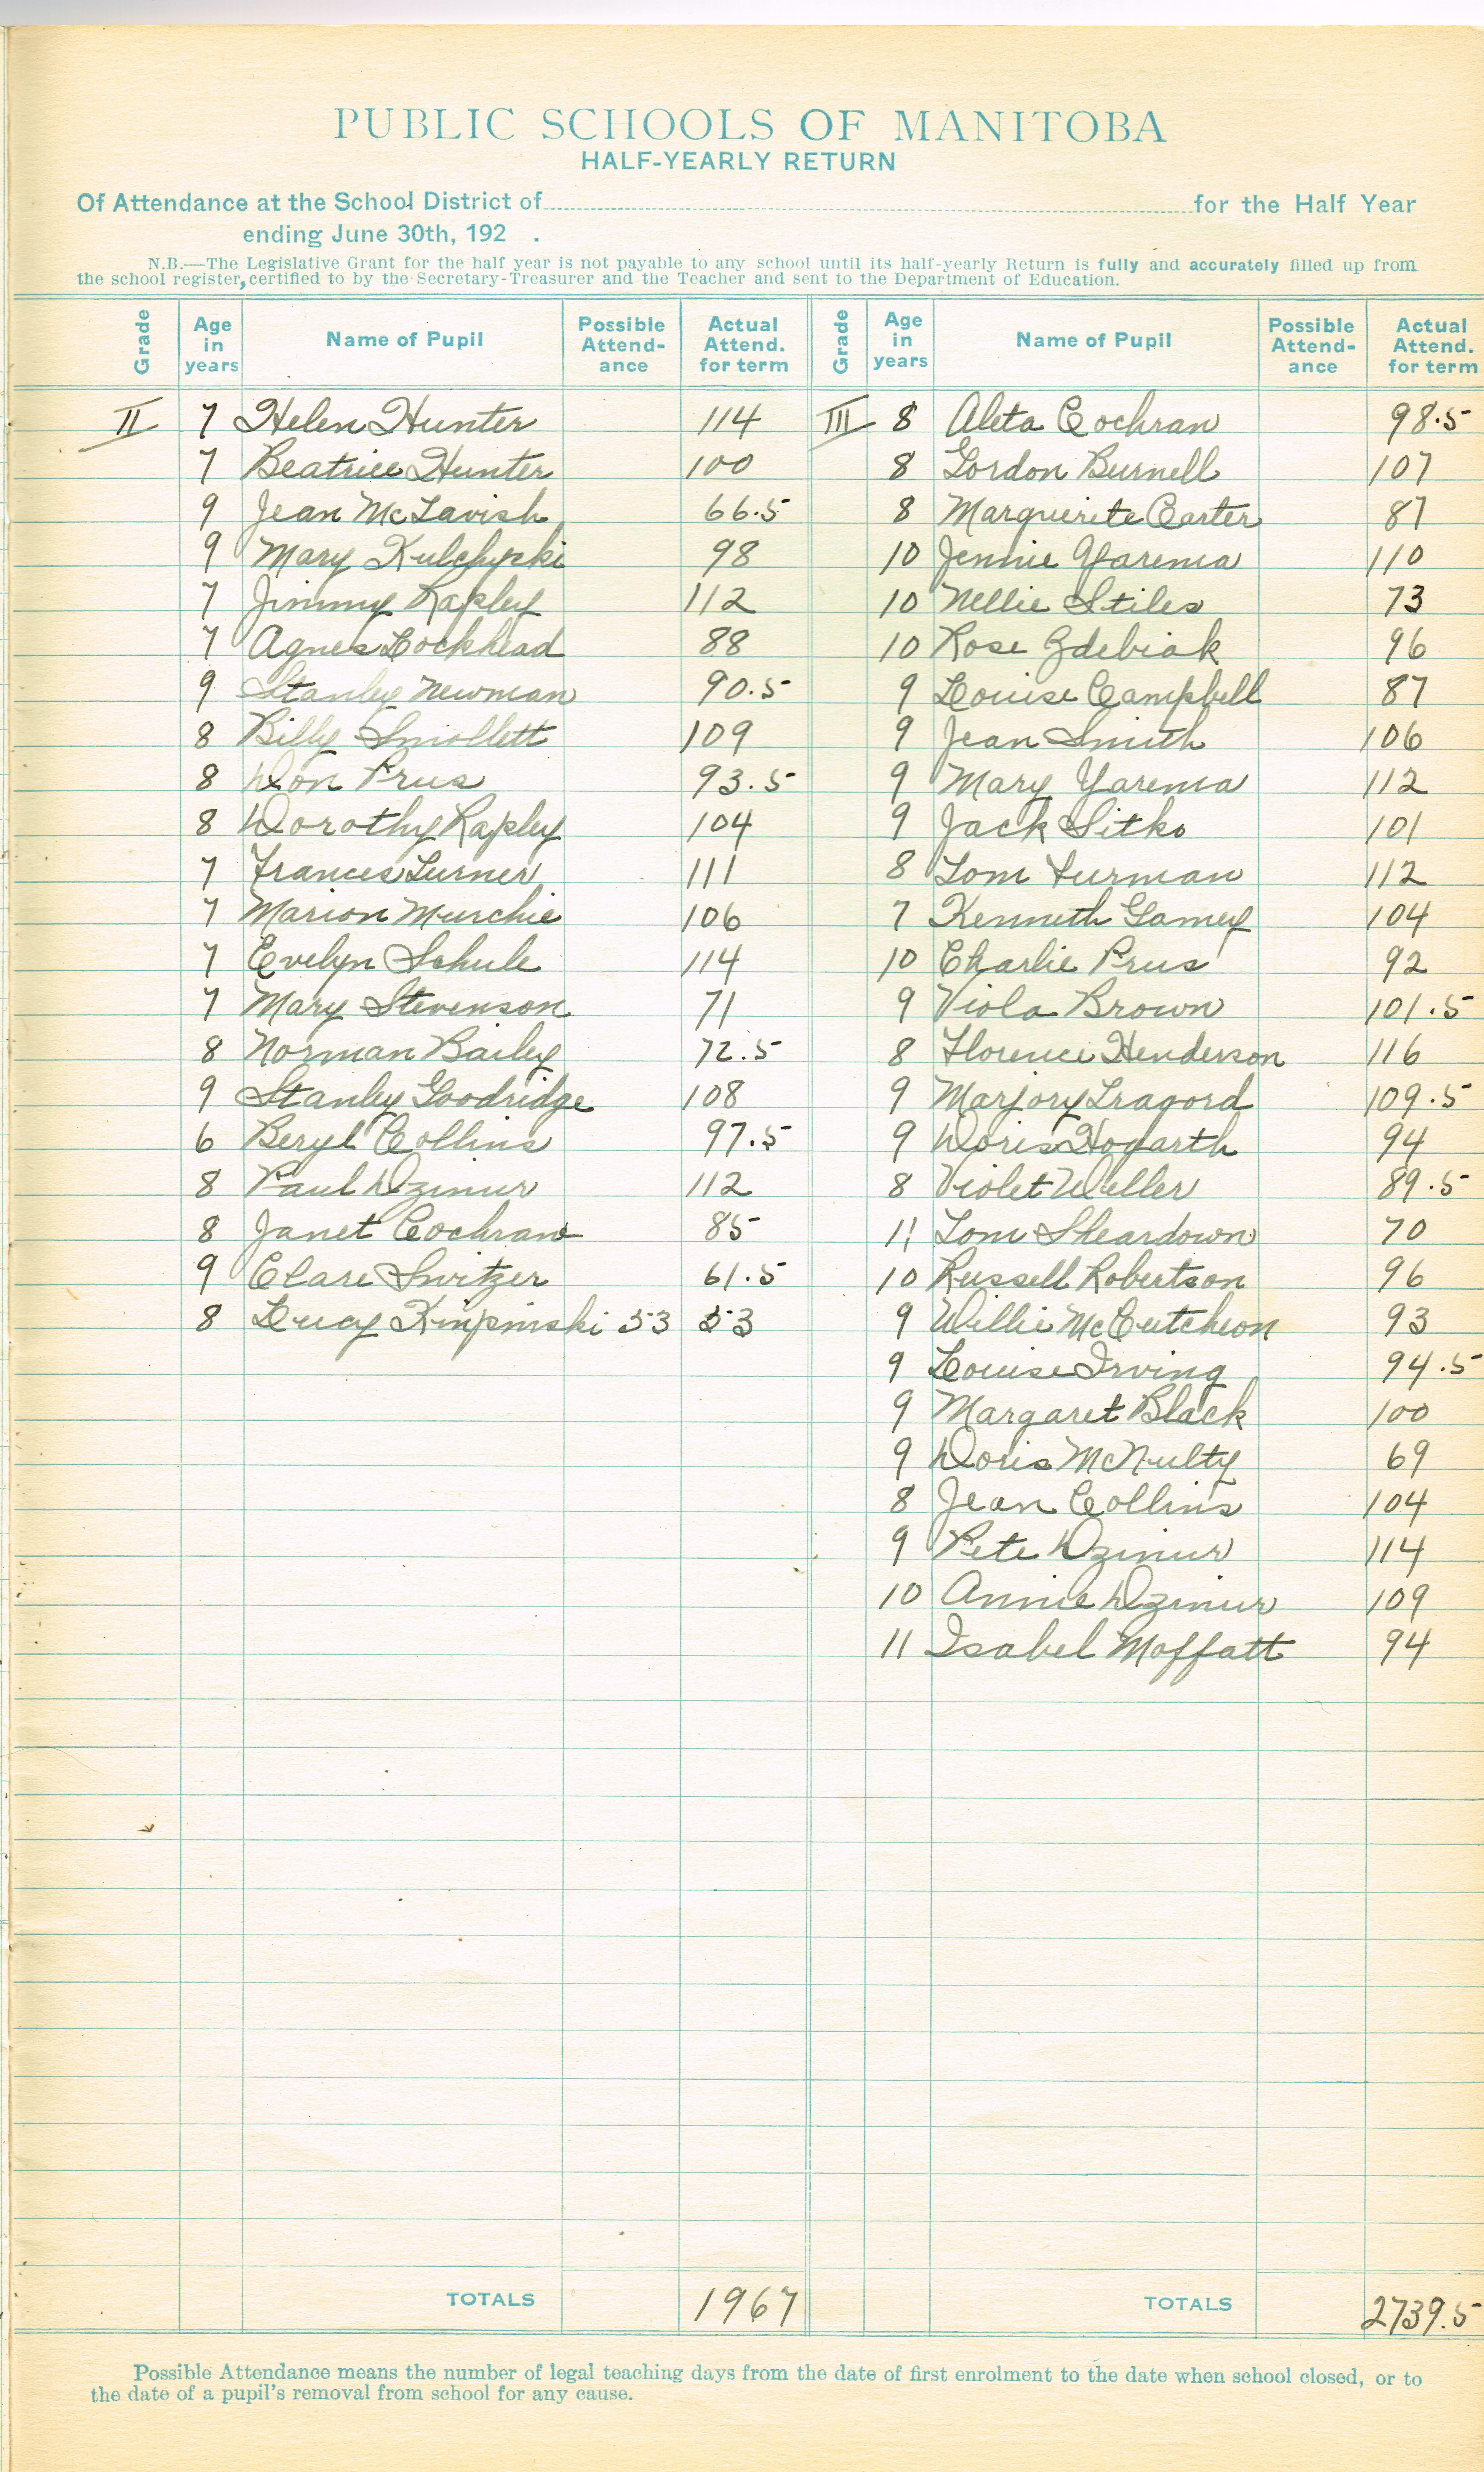 PUBLIC SCHOOLS OF MANITOBA
HALF-YEARLY RETURN
Of Attendance at the School District of for the Half Year
ending June 30th, 192 .
N.B.—The Legislative Grant for the half year is not payable to any school until its half-yearly Return is fully and accurately filled up from
the school register, certified to by the Secretary-Treasurer and the Teacher and sent to the Department of Education.
Grade Age in years Name of Pupil Possible Attend-ance Actual Attend. for term Grade Age in years Name of Pupil Possible Attend-ance Actual Attend. for term
II 7 Helen Hunter 114 III 8 Aleta Cochran 98.5
7 Beatrice Hunter 100 8 Gordon Burnell 107
9 Jean McTavish 66.5 8 Marguerite Carter 87
9 Mary Kulchyski 98 10 Jennie Yarema 110
7 Jimmy Rapley 112 10 Nellie Stiles 73
7 Agnes Lockhead 88 10 Rose Zdebiak 96
9 Stanley Newman 90.5 9 Louise Campbell 87
8 Billy Smollett 109 9 Jean Smith 106
8 Don Prus 93.5 9 Mary Yarema 112
8 Dorothy Rapley 104 9 Jack Sitko 101
7 Frances Turner 111 8 Tom Furman 112
7 Marion Murchie 106 7 Kenneth Gamey 104
7 Evelyn Schule 114 10 Charlie Prus 92
7 Mary Stevenson 71 9 Viola Brown 101.5
8 Norman Bailey 72.5 8 Florence Henderson 116
9 Stanley Goodridge 108 9 Marjory Tragord 109.5
6 Beryl Collins 97.5 9 Doris Hogarth 94
8 Paul Dzimur 112 8 Violet Weller 89.5
8 Janet Cochran 85 11 Tom Sheardown 70
9 Clare Switzer 61.5 10 Russell Robertson 96
8 Lucy 53 53 9 Willie McCutcheon 93
9 Louise Irving 94.5
9 Margaret Black 100
9 Doris McNulty 69
8 Jean Collins 104
9 Pete Dzimur 114
10 Annie Dzimur 109
11 Isabel Moffatt 94
TOTALS 1967 TOTALS 2739.5
Possible Attendance means the number of legal teaching days from the date of first enrolment to the date when school closed, or to
the date of a pupil's removal from school for any cause.